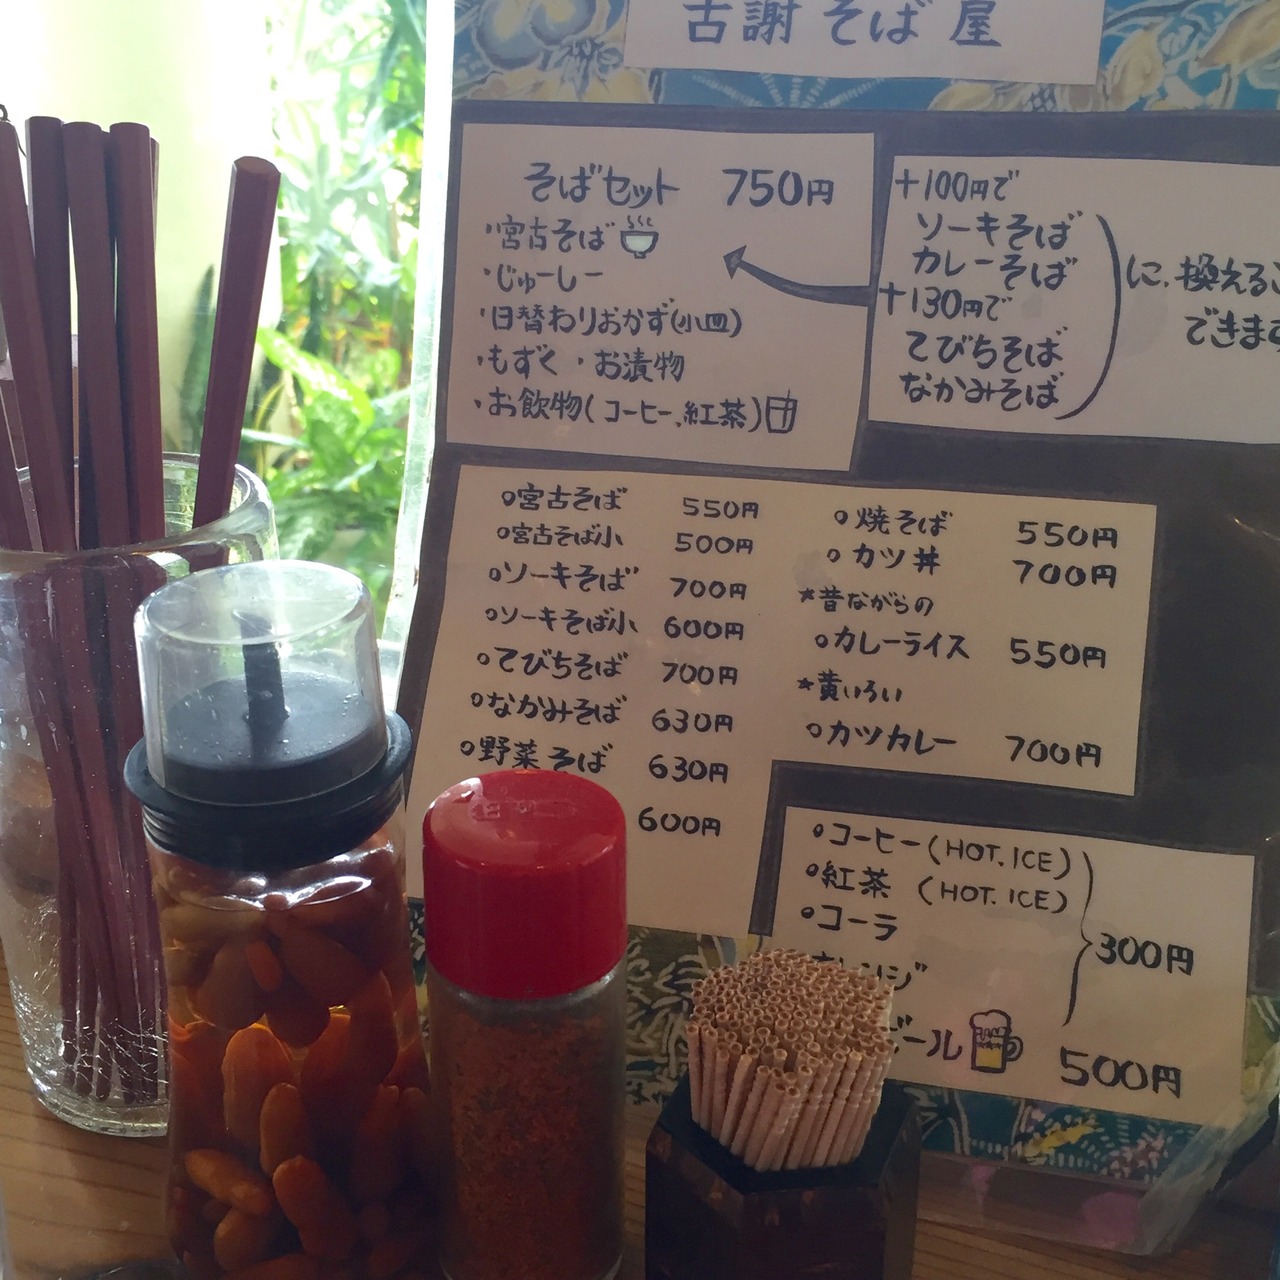 古謝そば屋
そばセット 750円
・宮古そば
・じゅーしー
・日替わりおかず(小皿)
・もずく・お漬物
・お飲物(コーヒー、紅茶)
+100円で
ソーキそば
カレーそば
+130円で
てびちそば
なかみそば
に、換える
できます
○宮古そば 550円
○宮古そば小 500円
○ソーキそば 700円
○ソーキそば小 600円
○てびちそば 700円
○なかみそば 630円
○野菜そば 630円
600円
○焼そば 550円
○カツ丼 700円
*昔ながらの
○カレーライス 550円
*黄いろい
○カツカレー 700円
○コーヒー(HOT.ICE)
○紅茶 (HOT.ICE)
○コーラ
オレンジ
300円
ビール 500円